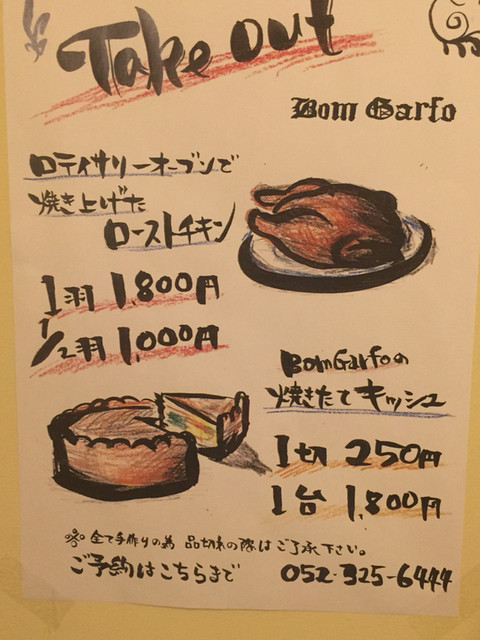 Take out
Bom Garfo
ロティサリーオーブンで
焼き上げた
ローストチキン
1羽 1,800円
1/2羽 1,000円
Bom Garfoの
焼きたてキッシュ
1切 250円
1台 1,800円
※全て手作りの為 品切れの際はご了承下さい。
ご予約はこちらまで 052-325-6444